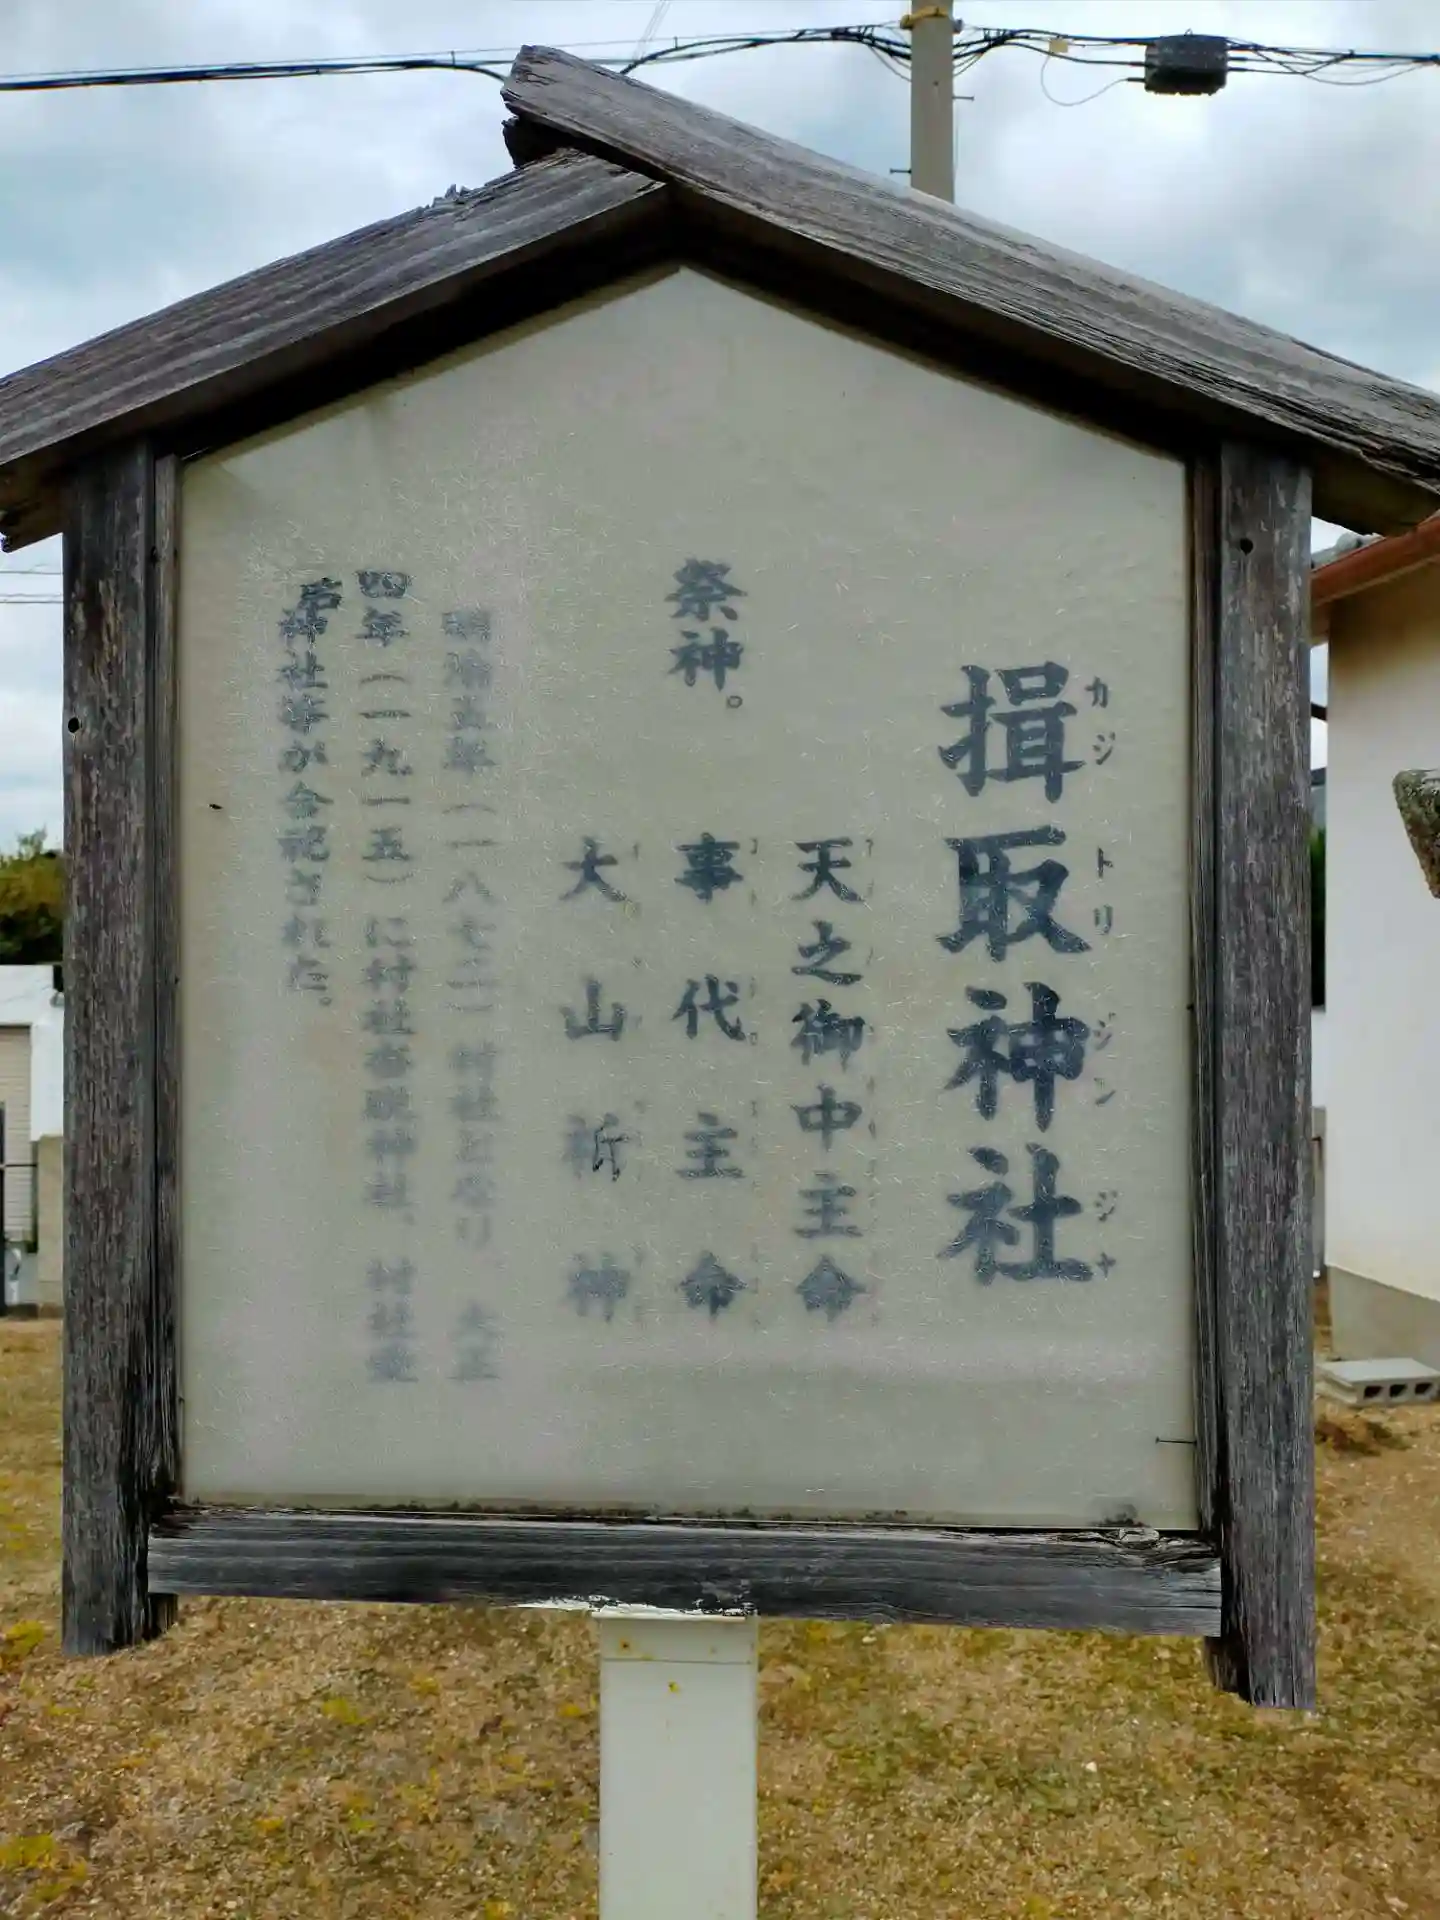 揖取神社
カジトリジンジャ
祭神。
天之御中主命
事代主命
大山祈神
明治五年（一八七二）村社となり、大正
四年（一九一五）に村社春日神社、村社
神社等が合祀された。